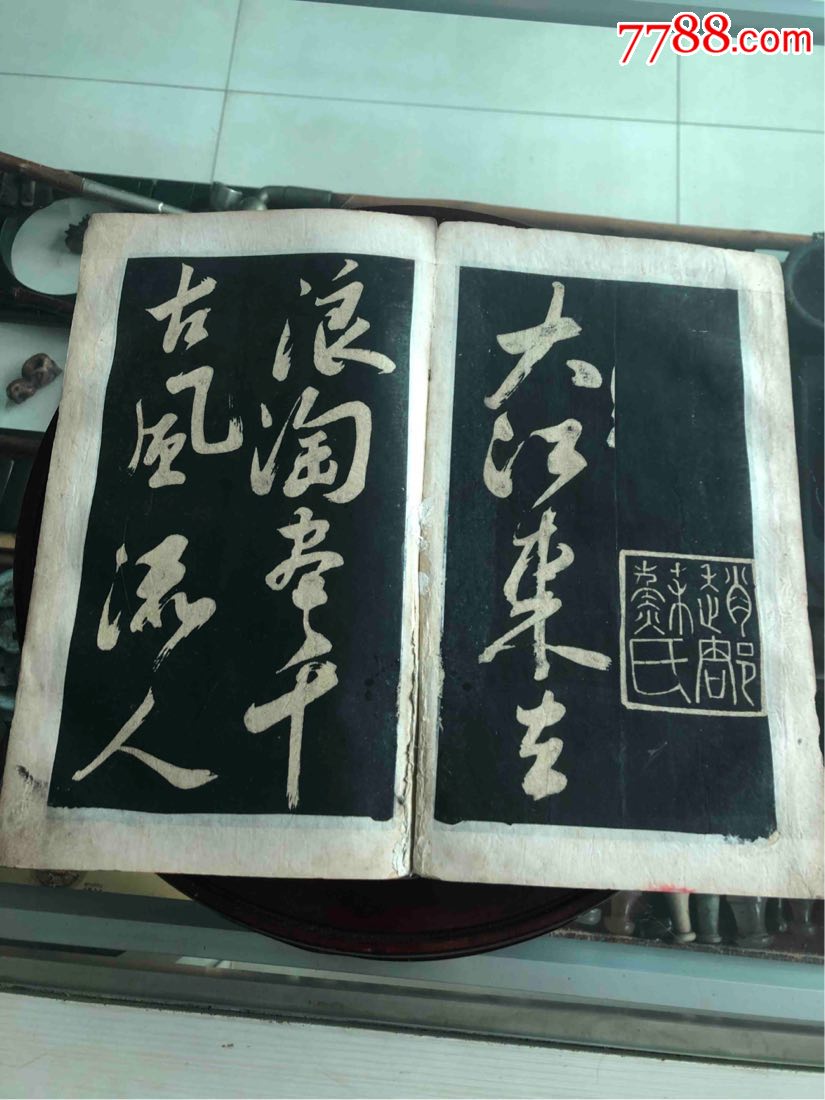 7788.com
趙郡蘇氏
大江東去
浪淘盡千
古風流人